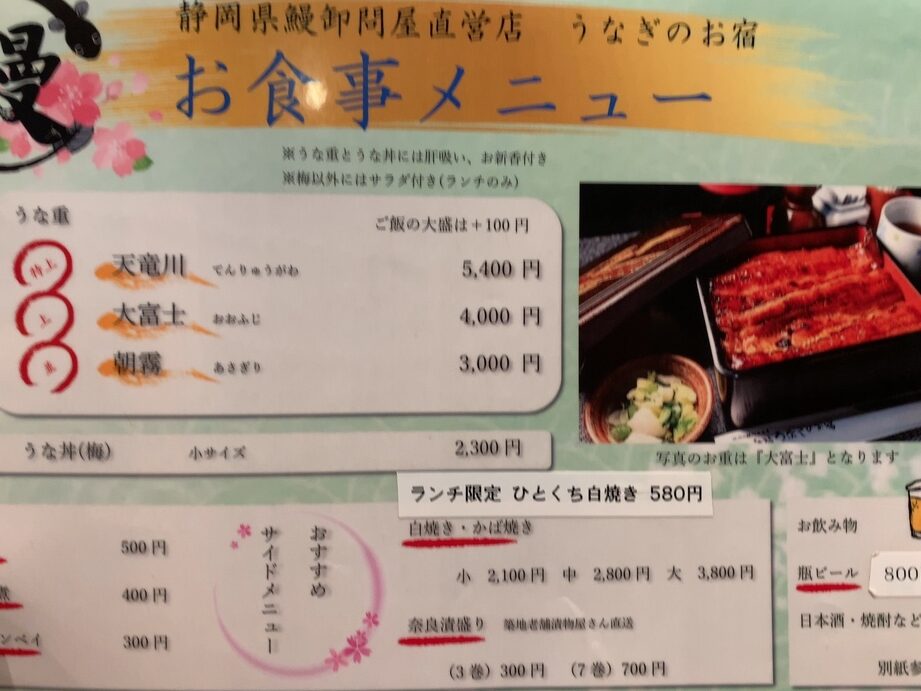 静岡県鰻卸問屋直営店　うなぎのお宿
お食事メニュー
※うな重とうな丼には肝吸い、お新香付き
※梅以外にはサラダ付き(ランチのみ)
うな重
ご飯の大盛は＋100円
特上 天竜川 てんりゅうがわ 5,400 円
上 大富士 おおふじ 4,000 円
朝霧 あさぎり 3,000 円
うな丼(梅) 小サイズ 2,300 円
写真のお重は『大富士』となります
ランチ限定 ひとくち白焼き 580円
500 円
400 円
300 円
おすすめ
サイドメニュー
白焼き・かば焼き
小 2,100 円 中 2,800 円 大 3,800 円
奈良漬盛り 築地老舗漬物屋さん直送
(3 巻) 300 円 (7 巻) 700 円
お飲み物
瓶ビール 800
日本酒・焼酎など
別紙参